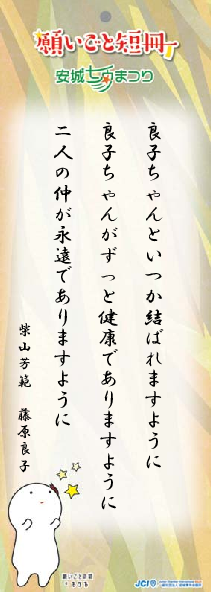 願いごと短冊
安城七夕まつり
良子ちゃんといつか結ばれますように
良子ちゃんがずっと健康でありますように
二人の仲が永遠でありますように
柴山芳範 藤原良子
願いごと短冊
JCI